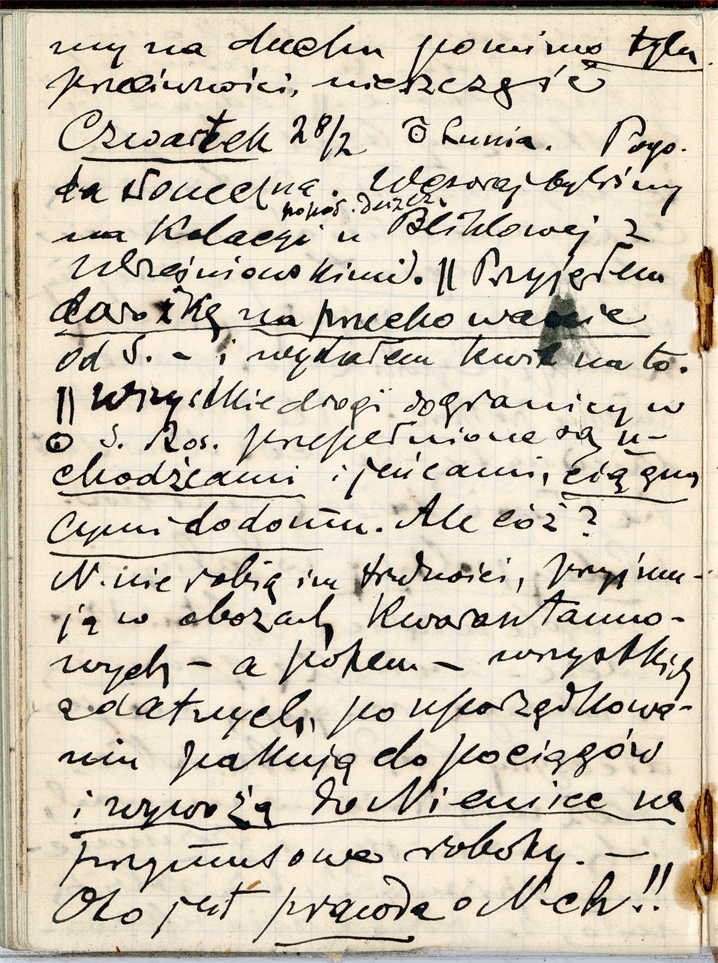 my na duchu pomimo tylu
przeciwności, nieszczęść
Czwartek 28/2 Łunia. Pogo-
da słoneczna. Wczoraj byliśmy
popoł. deszcz.
na kolacji u Bliklowej z
Wrześniowskimi). || Przyjąłem
na przechowanie
od S. – i wydałem kwit na to.
|| Wszystkie drogi do granicy w
S. Ros. przepełnione są u-
chodźcami i jeńcami, ciągną
cymi do domu. Ale cóż?
N. nie robią im trudności, przyjmu-
ją w obozach kwarantanno-
wych – a potem – wszystkich
zdatnych, po uporządkowa-
niu pakują do pociągów
i wywożą do Niemiec na
przymusowe roboty. –
Oto jest prawda o N-ch!!